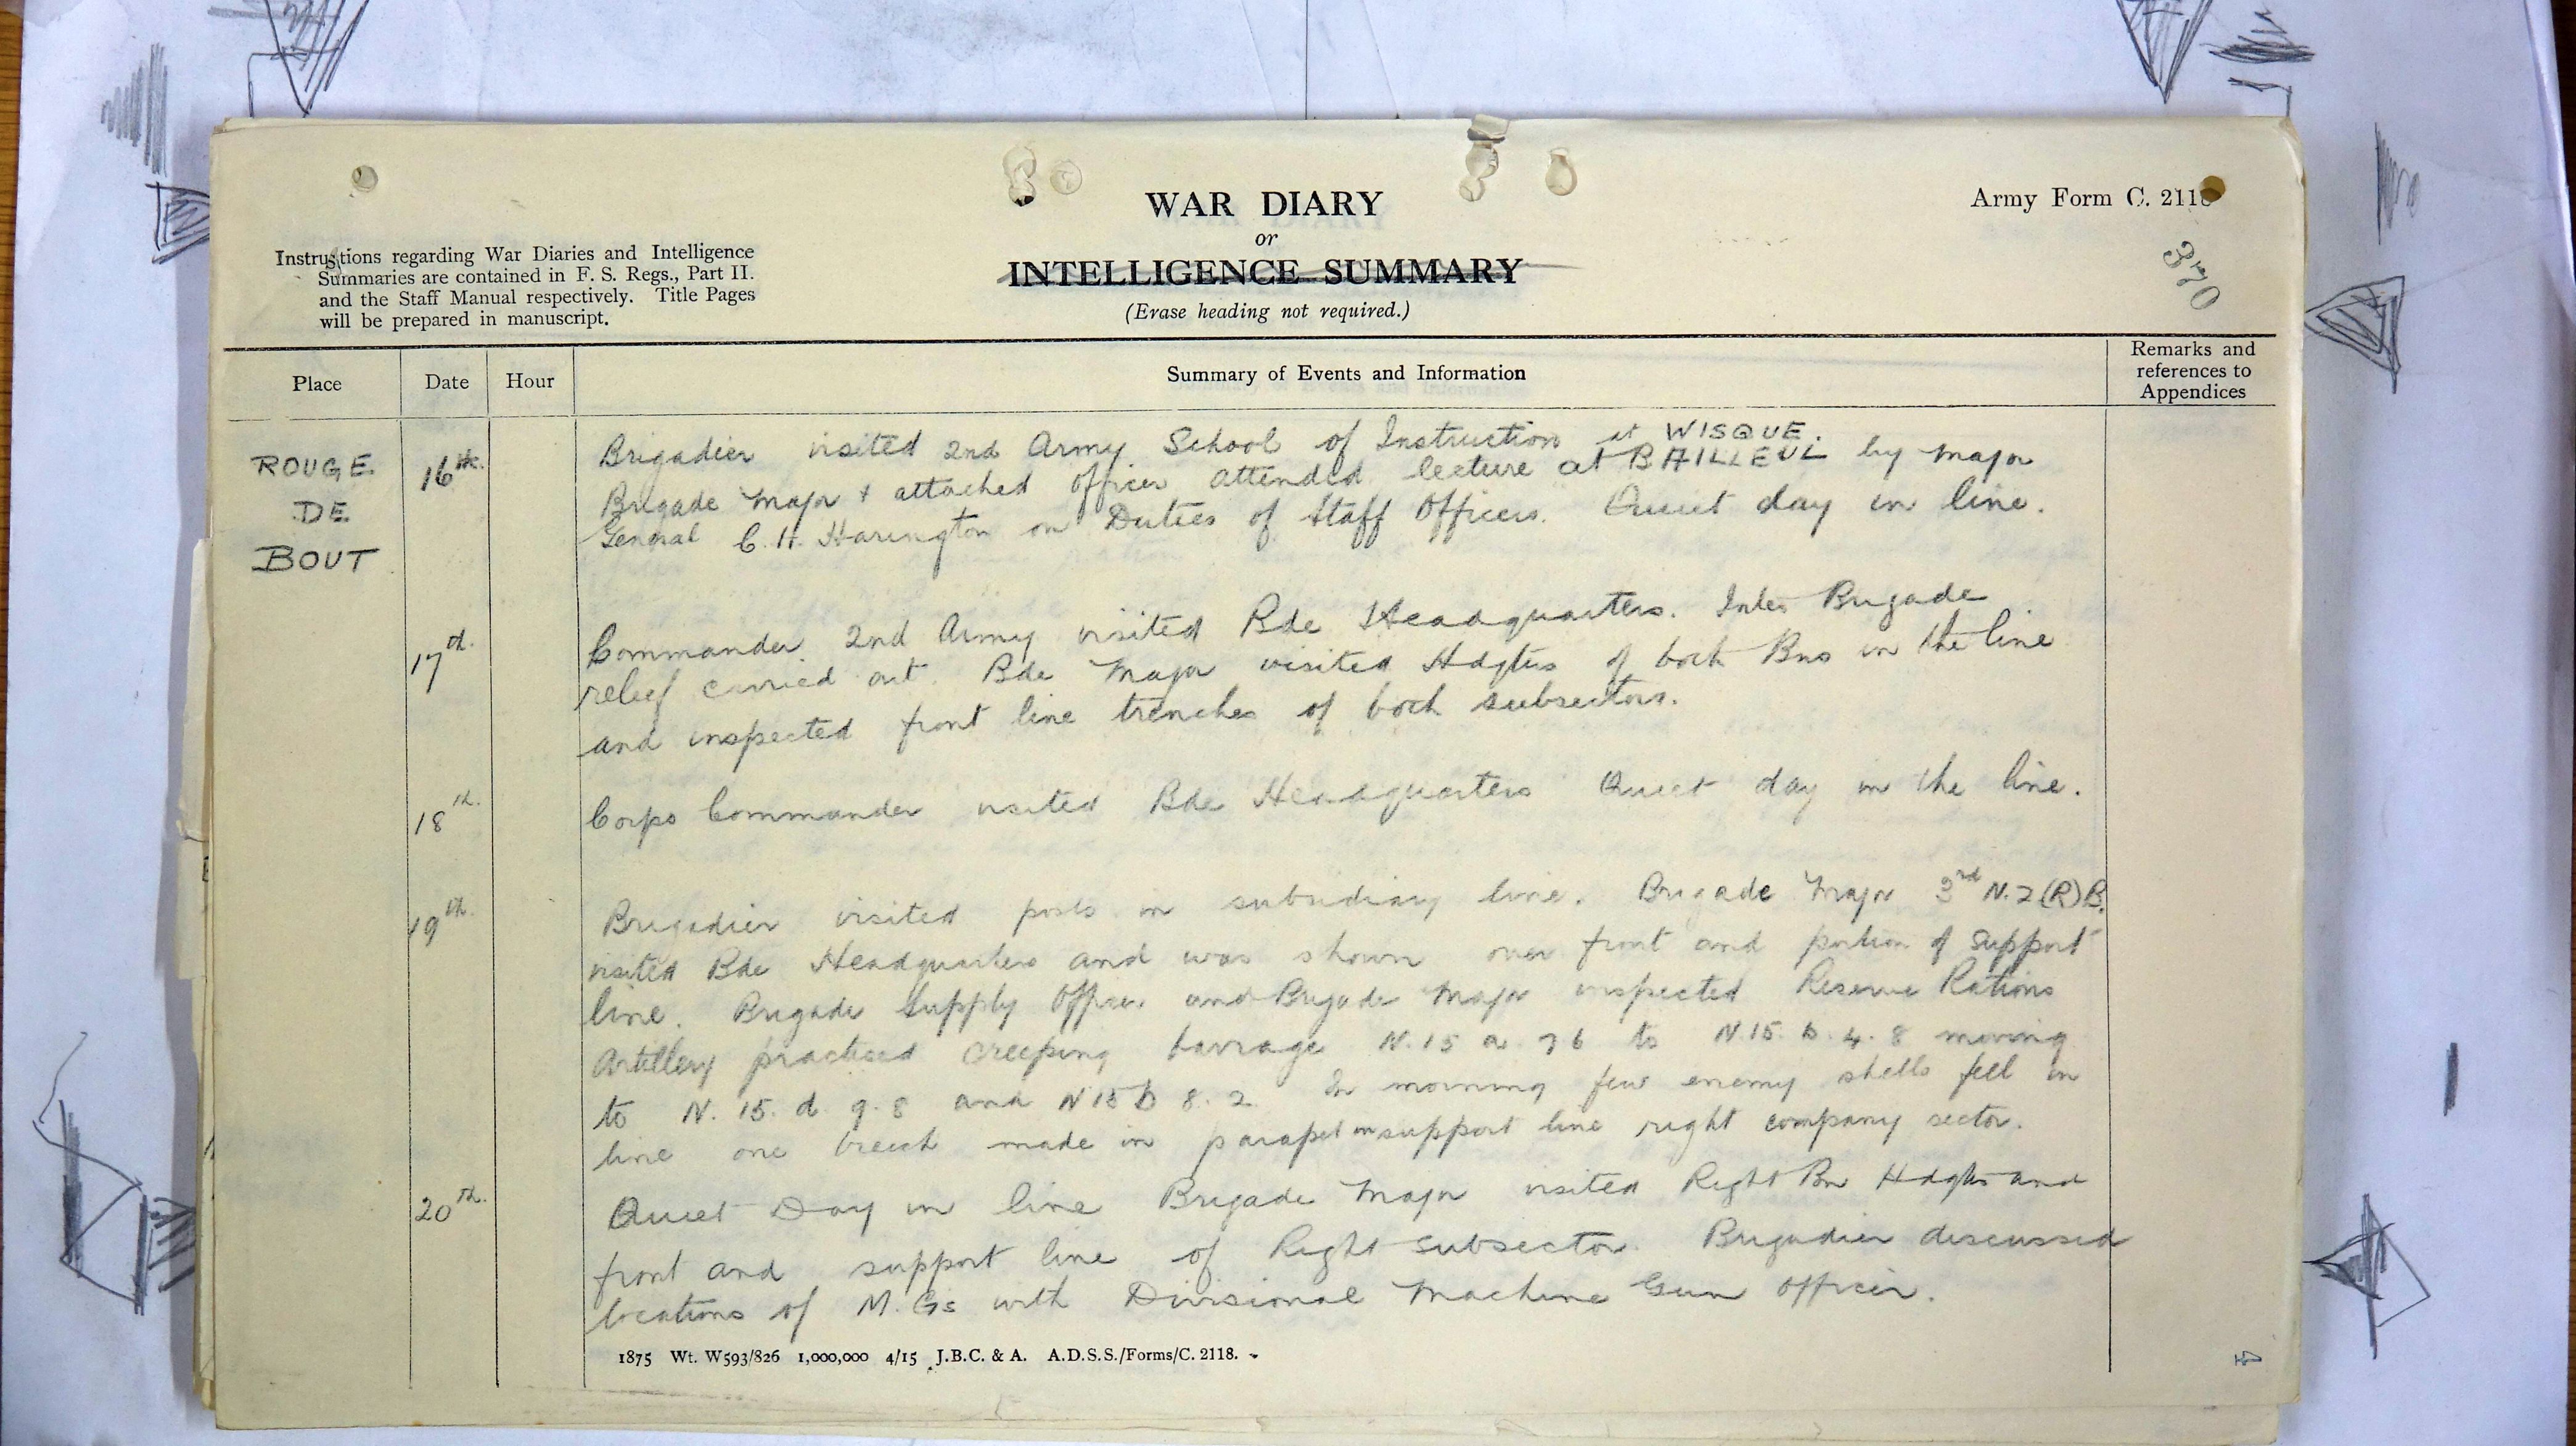 WAR DIARY
Army Form C. 2118
or
INTELLIGENCE SUMMARY
(Erase heading not required.)
Instructions regarding War Diaries and Intelligence
Summaries are contained in F. S. Regs., Part II.
and the Staff Manual respectively. Title Pages
will be prepared in manuscript.
370
Place Date Hour Summary of Events and Information Remarks and references to Appendices
ROUGE
DE
BOUT
16th. Brigadier visited 2nd Army School of Instruction at WISQUE.
Brigade Major & attached officer attended lecture at BAILLEUL by Major
General C. H. Harington on Duties of Staff Officers. Quiet day in line.
17th. Commander 2nd Army visited Bde Headquarters. Inter Brigade
relief carried out. Bde Major visited Hdqtrs of both Bns in the line
and inspected front line trenches of both subsectors.
18th. Corps Commander visited Bde Headquarters Quiet day in the line.
19th. Brigadier visited posts in subsidiary line. Brigade Major 3rd N.Z(R)B.
visited Bde Headquarters and was shown over front and portion of support
line. Brigade Supply Officer and Brigade Major inspected Reserve Rations
Artillery practised creeping barrage N.15 a 7 6 to N.15. b. 4. 8 moving
to N. 15. d. 9. 8 and N 15 b 8. 2 In morning few enemy shells fell in
line one breech made in parapet in support line right company sector.
20th. Quiet Day in line Brigade Major visited Right Bn Hdqtrs and
front and support line of Right subsector. Brigadier discussed
locations of M. Gs with Divisional Machine Gun Officer.
1875 Wt. W593/826 1,000,000 4/15 J.B.C. & A. A.D.S.S./Forms/C. 2118.